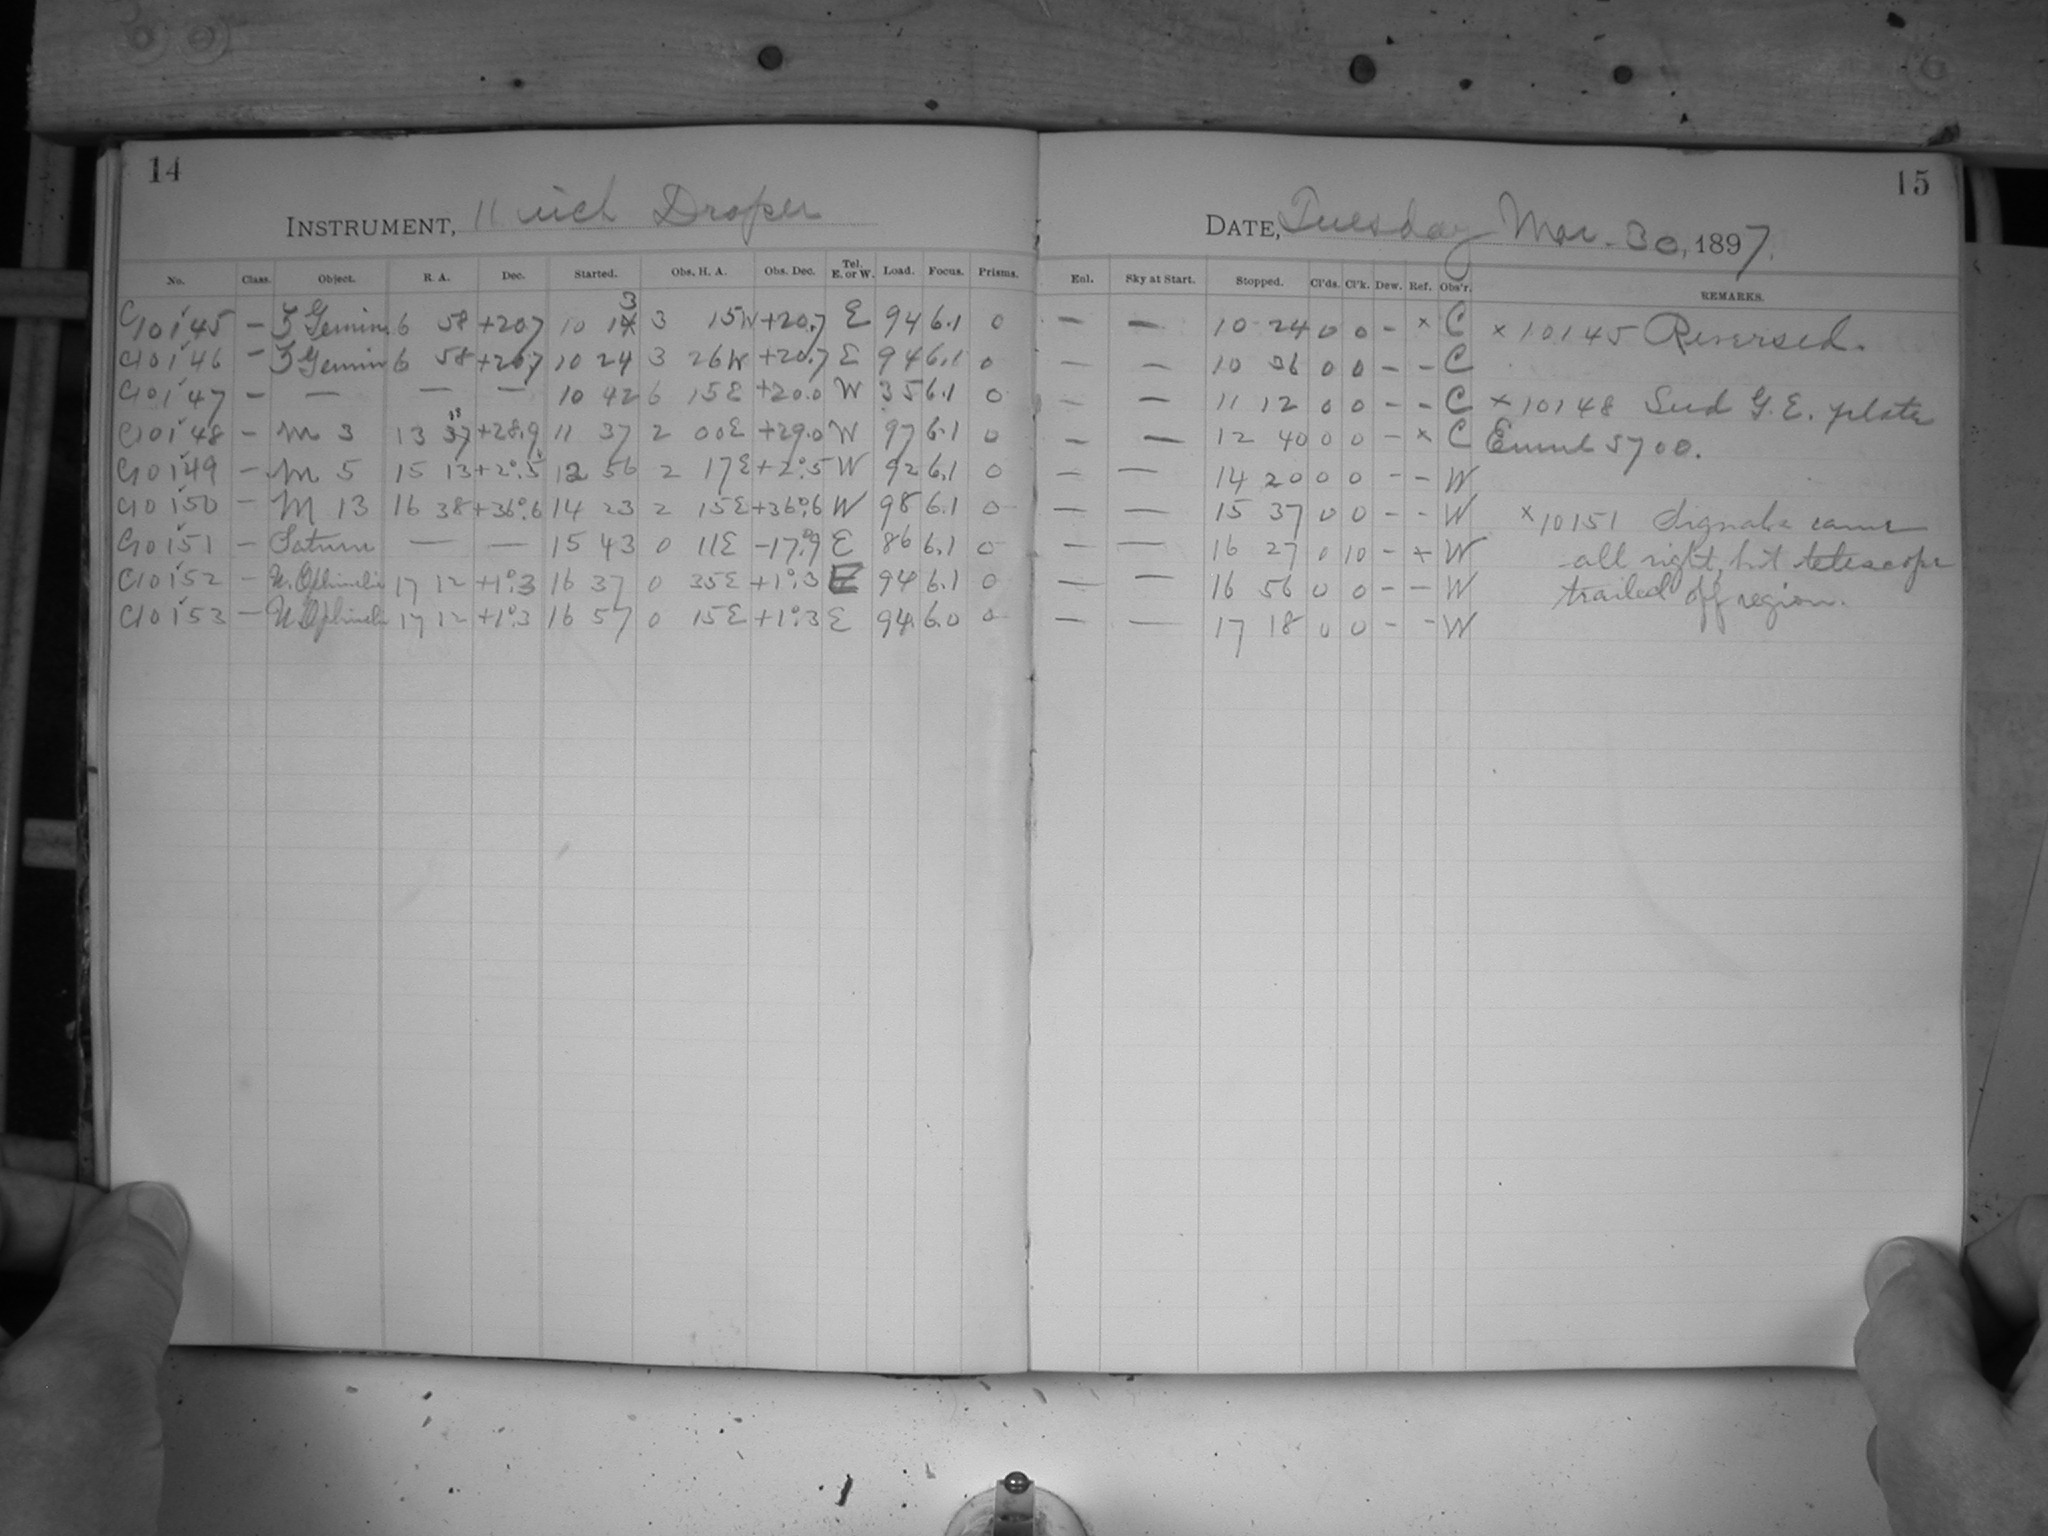 14
INSTRUMENT, 11 inch Draper
No. Class. Object. R. A. Dec. Started. Obs. H. A. Obs. Dec. Tel. E. or W. Load. Focus. Prisms.
C10145 — ζ Gemin. 6 58 +20.7 10 13 3 15W +20.7 E 94 6.1 0
C10146 — ζ Gemin 6 58 +20.7 10 24 3 26W +20.7 E 94 6.1 0
C10147 — — — — 10 42 6 15E +20.0 W 35 6.1 0
C10148 — M 3 13 37 +28.9 11 37 2 00E +29.0 W 97 6.1 0
C10149 — M 5 15 13 +2°.5 12 56 2 17E +2°.5 W 92 6.1 0
C10150 — M 13 16 38 +36°.6 14 23 2 15E +36°.6 W 98 6.1 0
C10151 — Saturn — — 15 43 0 11E -17°.9 E 86 6.1 0
C10152 — U. Ophiuchi 17 12 +1°.3 16 37 0 35E +1°.3 E 94 6.1 0
C10153 — U. Ophiuchi 17 12 +1°.3 16 57 0 15E +1°.3 E 94 6.0 0
15
DATE, Tuesday Mar. 30, 1897.
Enl. Sky at Start. Stopped. Cl'ds. Cl'k. Dew. Ref. Obs'r. REMARKS.
— — 10 24 0 0 - × C × 10145 Reversed.
— — 10 36 0 0 - - C
— — 11 12 0 0 - - C × 10148 Seed G. E. plate
— — 12 40 0 0 - × C Emul 5700.
— — 14 20 0 0 - - W
— — 15 37 0 0 - - W × 10151 Signals came
— — 16 27 0 10 - × W all right, but telescope
— — 16 56 0 0 - - W trailed off region.
— — 17 18 0 0 - - W